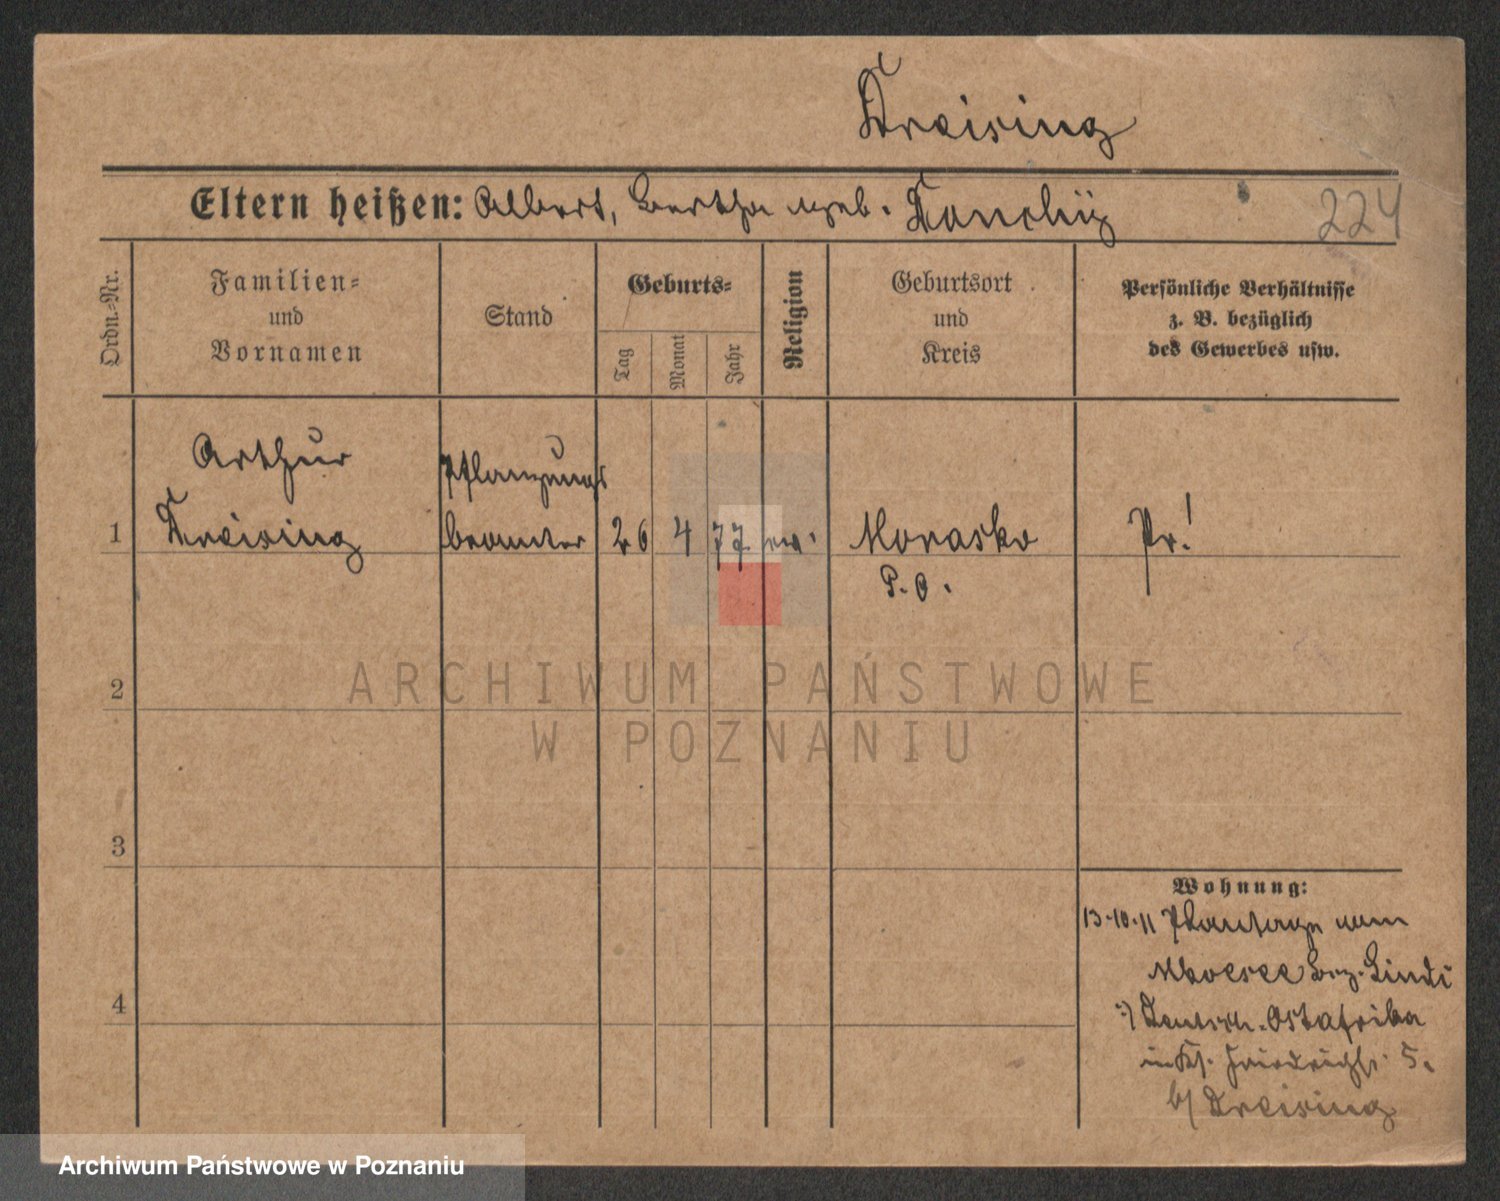 Kreising
Eltern heißen: Albert, Bertha geb.
224
Ordn.-Nr.
Familien-
und
Vornamen
Stand
Geburts-
Tag
Monat
Jahr
Religion
Geburtsort
und
Kreis
Persönliche Verhältnisse
z. B. bezüglich
des Gewerbes usw.
1
Arthur
Kreising
Pflanzungs
beamter
26
4
77
ev.
Morasko
P. O.
Pr!
2
3
4
Wohnung:
13.10.11 Plantage am
Bez. Lindi
Deutsch. Ostafrika
Friedrichstr. 5.
b/ Kreising
ARCHIWUM PAŃSTWOWE
W POZNANIU
Archiwum Państwowe w Poznaniu